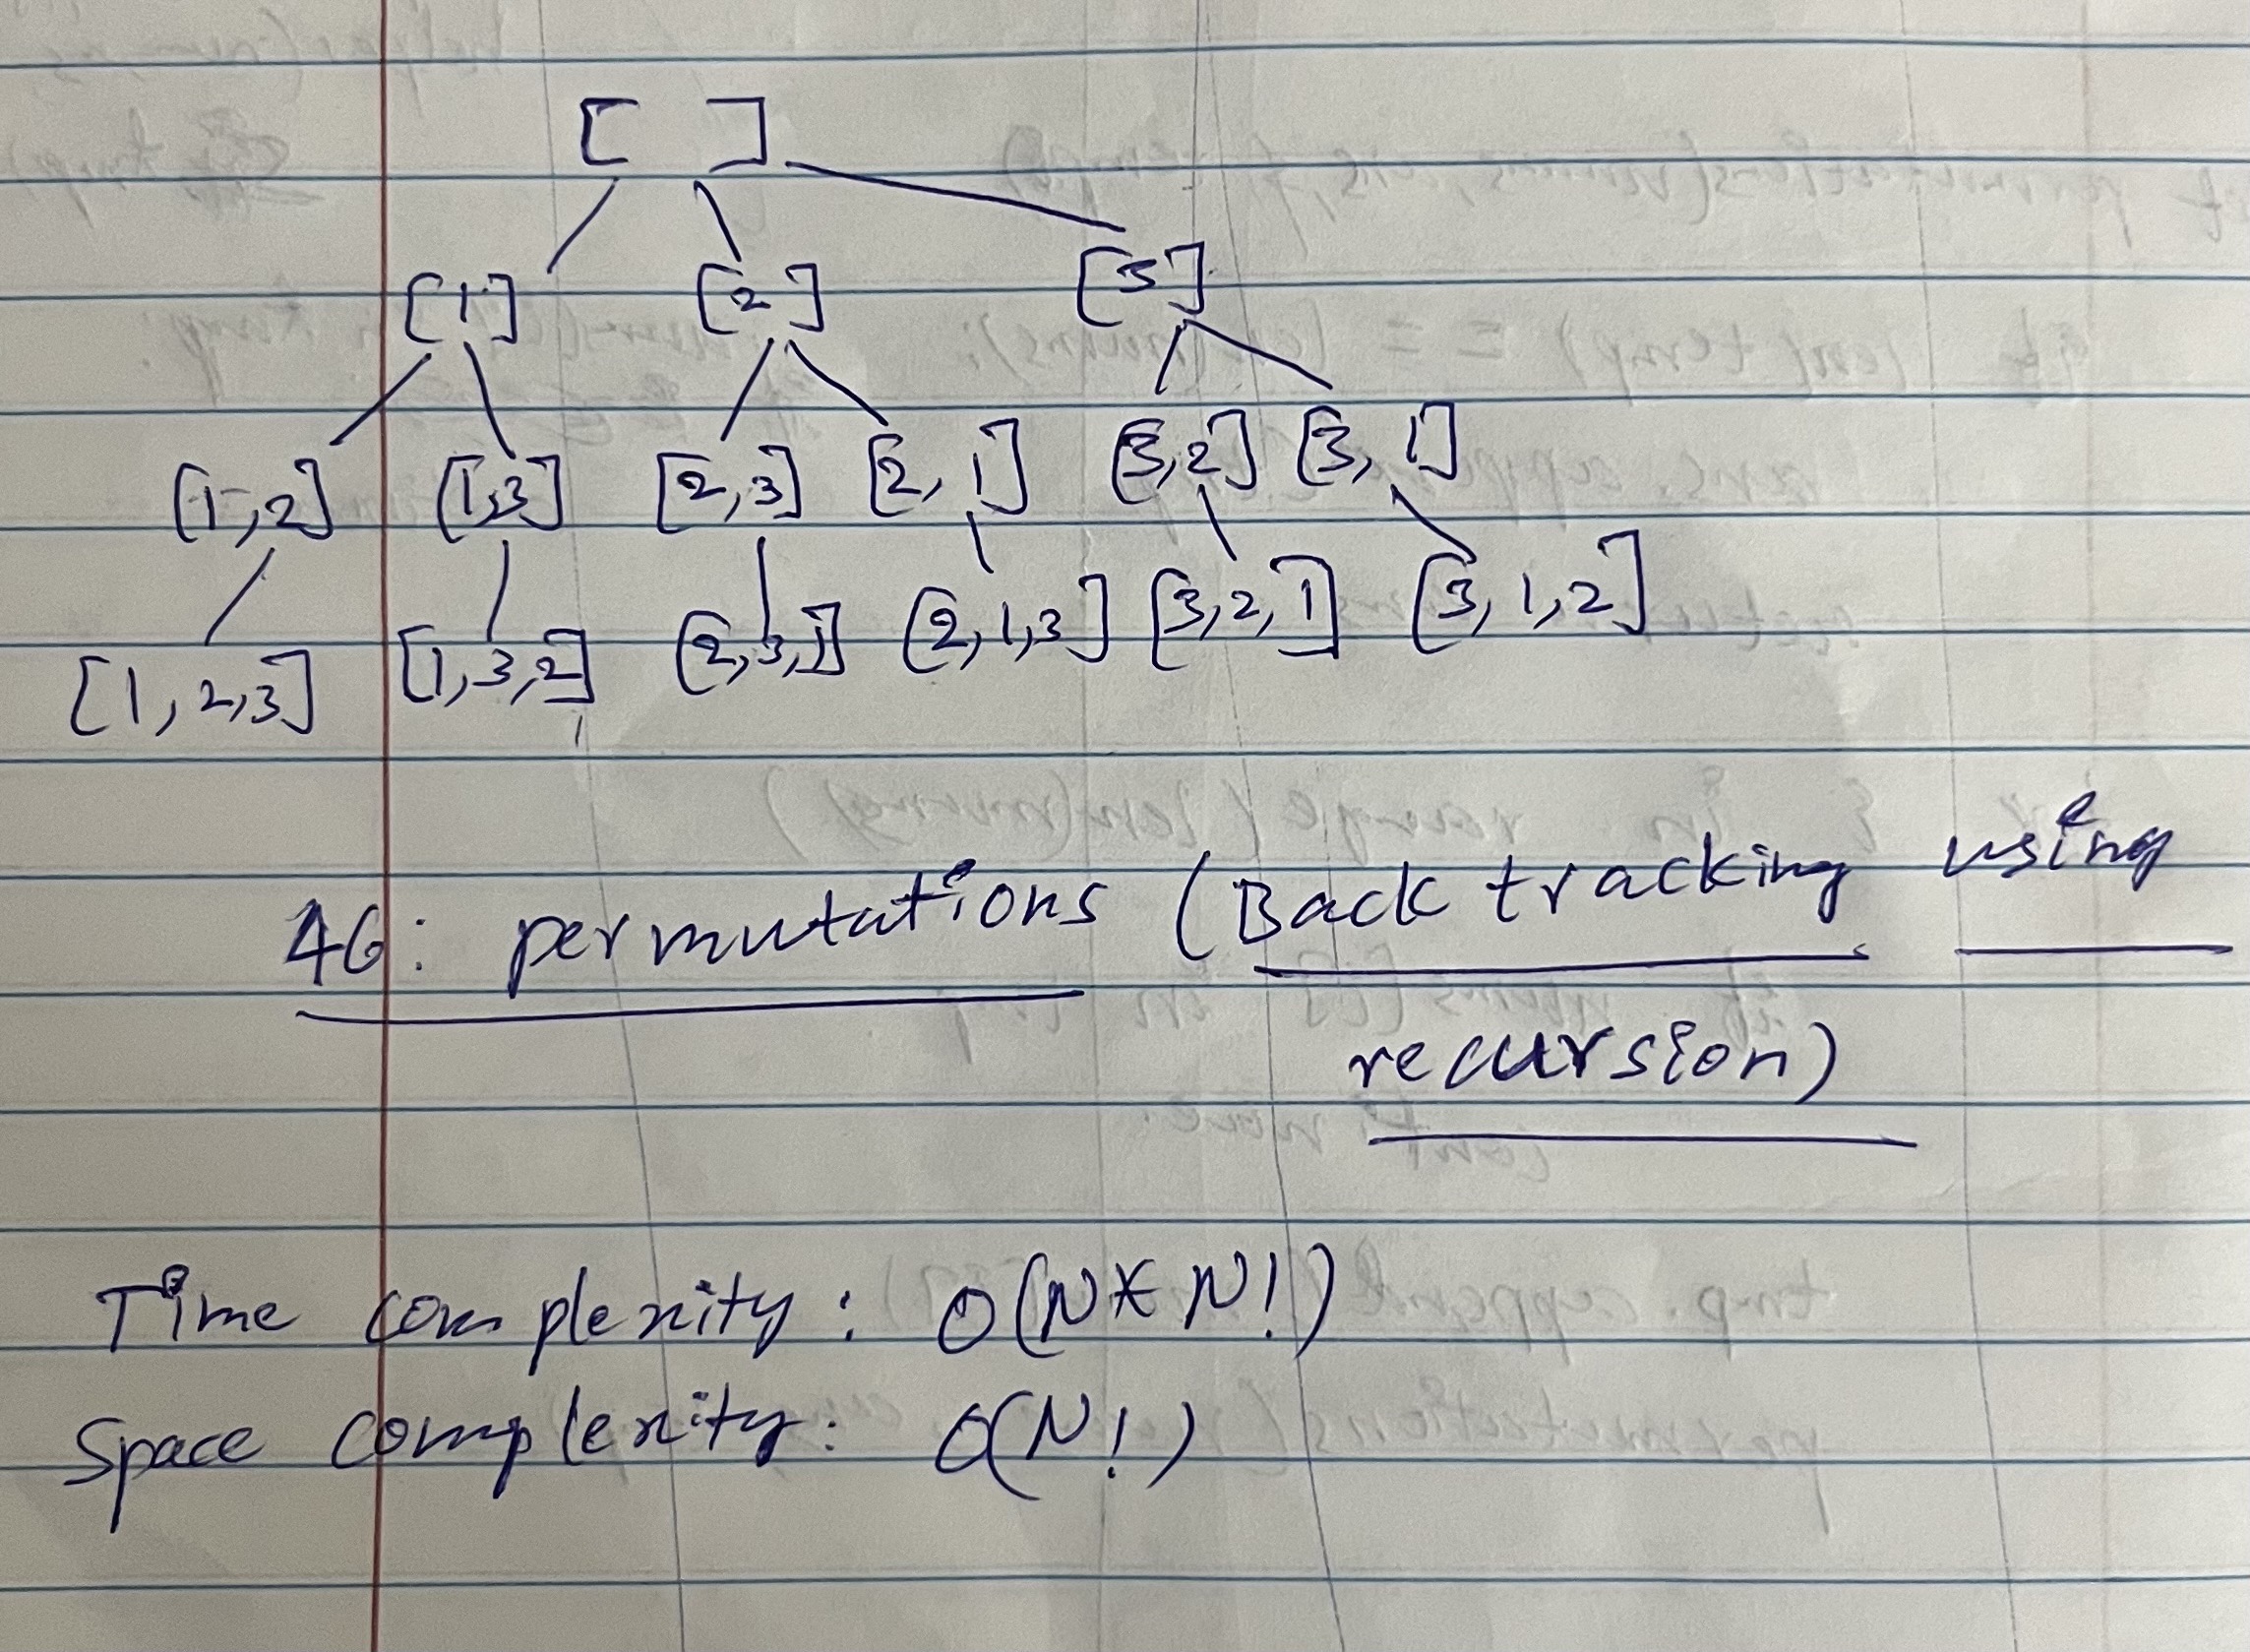 [ ]
[1] [2] [3]
[1,2] [1,3] [2,3] [2,1] [3,2] [3,1]
[1,2,3] [1,3,2] [2,3,1] [2,1,3] [3,2,1] [3,1,2]
46: permutations (Back tracking using
recursion)
Time complexity: O(N*N!)
Space complexity: O(N!)